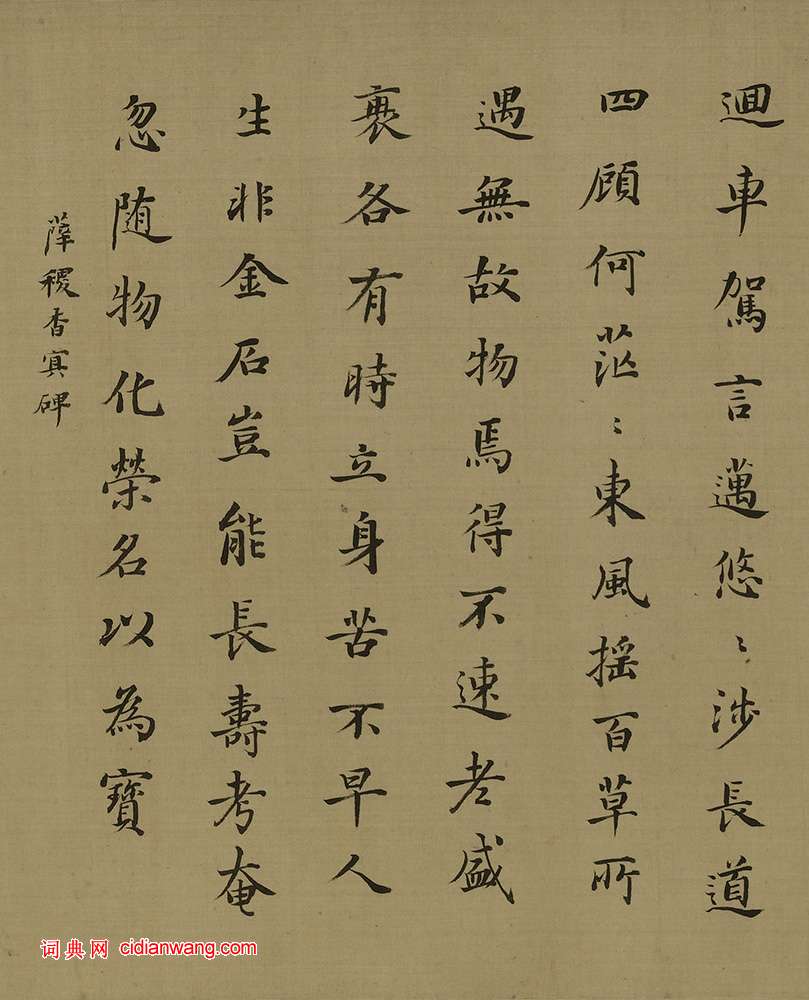 迴車駕言邁悠〻涉長道
四顧何茫〻東風搖百草所
遇無故物焉得不速老盛
衰各有時立身苦不早人
生非金石豈能長壽考奄
忽随物化榮名以為寶
薛稷杳冥碑
词典网 cidianwang.com